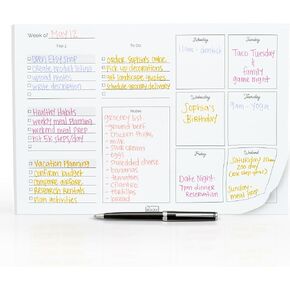 Week of May 12
Top 3
Open Etsy shop
create product listing
upload photos
write description
Healthy Habits
weekly meal planning
weekend meal prep
hit 5k steps/day
Vacation Planning
confirm budget
compare airfare
Research Rentals
plan activities
To Do
order Sophia's cake
pick up decorations
get landscape quotes
schedule grocery delivery
Notes
grocery list
ground beef
chicken thighs
milk
sour cream
eggs
shredded cheese
bananas
tomatoes
cilantro
tortillas
bread
Monday
11am - dentist
Tuesday
Taco Tuesday
&
family
game night
Wednesday
Sophia's
Birthday
Thursday
9am - yoga
Friday
Date Night-
7pm dinner
reservation
Weekend
Saturday
zoo day
Sunday-
meal prep